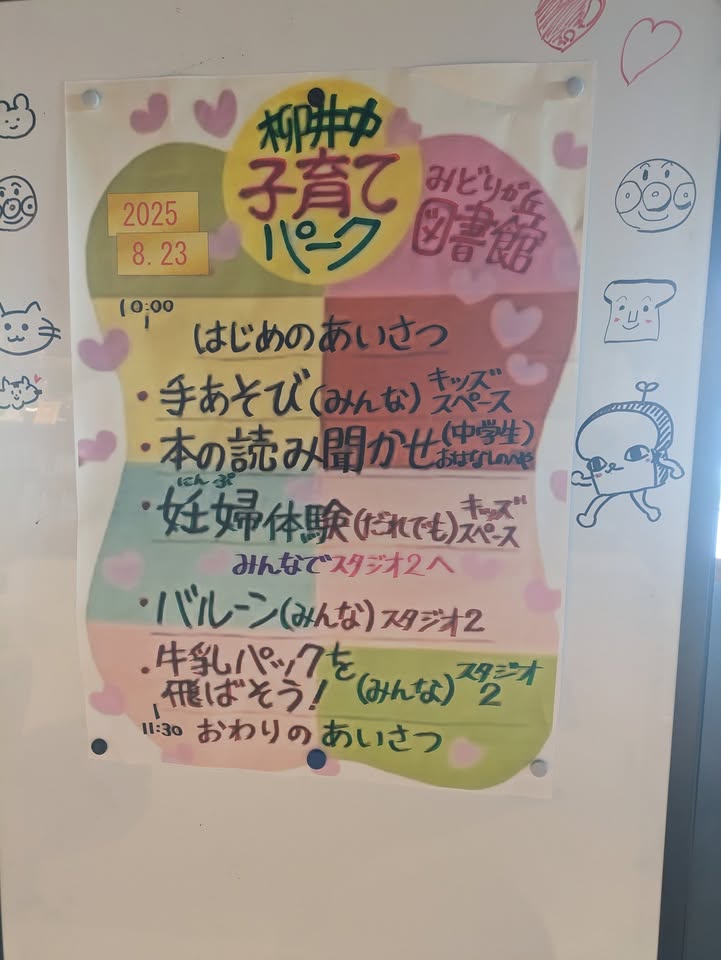 柳井中
子育て
パーク
みどりが丘
図書館
2025
8.23
10:00
はじめのあいさつ
・手あそび(みんな) キッズスペース
・本の読み聞かせ(中学生) おはなしのへや
にんぷ
・妊婦体験(だれでも) キッズスペース
みんなでスタジオ2へ
・バルーン(みんな) スタジオ2
・牛乳パックを
飛ばそう! (みんな) スタジオ2
11:30 おわりのあいさつ